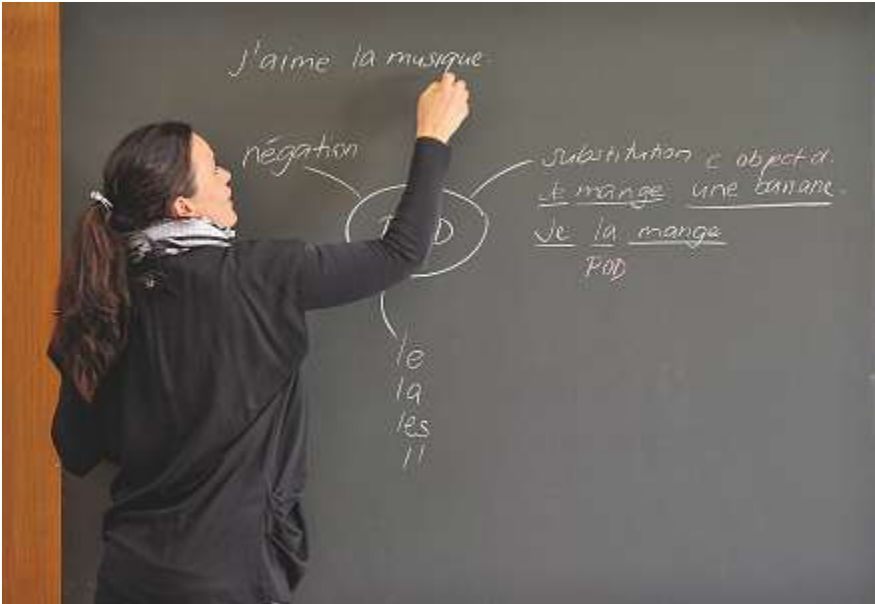 J'aime la musique.
négation
substitution c object d.
Je mange une banane.
Je la mange
POD
le
la
les
l'